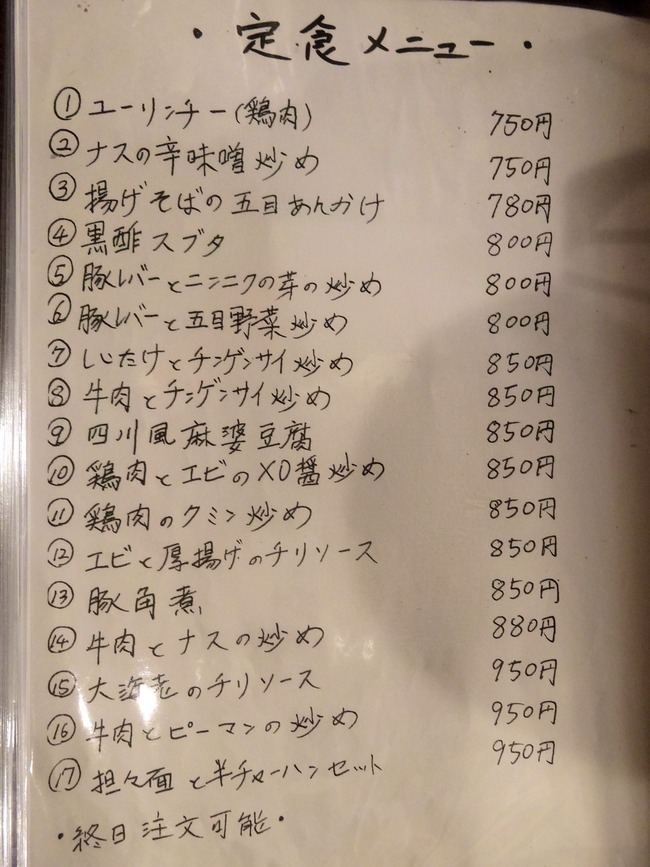 ・定食メニュー・
① ユーリンチー(鶏肉) 750円
② ナスの辛味噌炒め 750円
③ 揚げそばの五目あんかけ 780円
④ 黒酢スブタ 800円
⑤ 豚レバーとニンニクの芽の炒め 800円
⑥ 豚レバーと五目野菜炒め 800円
⑦ しいたけとチンゲンサイ炒め 850円
⑧ 牛肉とチンゲンサイ炒め 850円
⑨ 四川風麻婆豆腐 850円
⑩ 鶏肉とエビのXO醤炒め 850円
⑪ 鶏肉のクミン炒め 850円
⑫ エビと厚揚げのチリソース 850円
⑬ 豚角煮 850円
⑭ 牛肉とナスの炒め 880円
⑮ 大海老のチリソース 950円
⑯ 牛肉とピーマンの炒め 950円
⑰ 担々面と半チャーハンセット 950円
・終日注文可能・